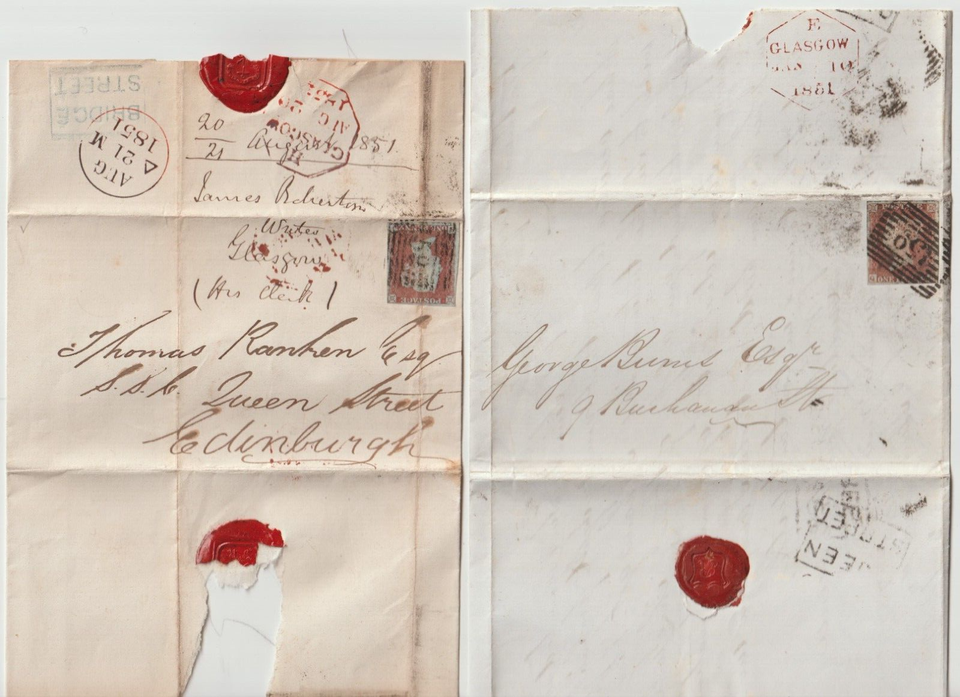 BRIDGE
STREET
AUG
21 M
1851
H
GLASGOW
AUG 20
1851
20
21 August 1851
James Robertson
Writer
Glasgow
(His clerk)
Thomas Ranken Esq
S.S.C. Queen Street
Edinburgh
POSTAGE
E
GLASGOW
JAN 10
1851
George Burns Esqr
9 Buchanan St
STREET
STREET